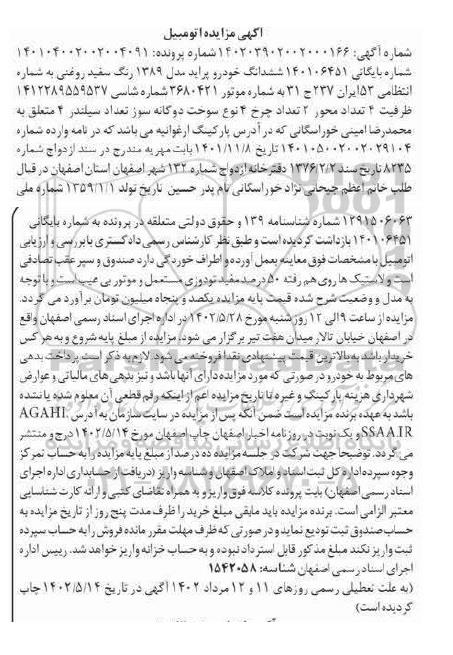 آگهی مزایده اتومبیل
شماره آگهی: ۱۴۰۲۰۳۹۰۲۰۰۲۰۰۰۱۶۶ شماره پرونده: ۱۴۰۱۰۴۰۰۲۰۰۲۰۰۴۰۹۱
شماره بایگانی ۱۴۰۱۰۶۴۵۱ ششدانگ خودرو پراید مدل ۱۳۸۹ رنگ سفید روغنی به شماره
انتظامی ۵۳ ایران ۲۳۷ ج ۳۱ به شماره موتور ۳۶۸۰۴۲۱ شماره شاسی ۱۴۱۲۲۸۹۵۵۹۵۳۷
ظرفیت ۴ تعداد محور ۲ تعداد چرخ ۴ نوع سوخت دوگانه سوز تعداد سیلندر ۴ متعلق به
محمدرضا امینی خوراسگانی که در آدرس پارکینگ ارغوانیه می باشد که در نامه وارده شماره
۱۴۰۱۰۵۰۰۲۰۰۲۰۲۹۱۰۴ تاریخ ۱۴۰۱/۱۱/۸ بابت مهریه مندرج در سند ازدواج شماره
۸۲۳۵ تاریخ سند ۱۳۷۶/۲/۲ دفترخانه ازدواج شماره ۱۳۲ شهر اصفهان استان اصفهان در قبال
طلب خانم اعظم جیحانی نژاد خوراسگانی نام پدر حسین تاریخ تولد ۱۳۵۹/۱/۱ شماره ملی
۱۲۹۱۵۰۶۰۶۳ شماره شناسنامه ۱۳۹ و حقوق دولتی متعلقه در پرونده به شماره بایگانی
۱۴۰۱۰۶۴۵۱ بازداشت گردیده است و طبق نظر کارشناس رسمی دادگستری با بررسی و ارزیابی
اتومبیل با مشخصات فوق معاینه بعمل آورده و اطراف خوردگی دارد صندوق و سپر عقب تصادفی
است و لاستیک ها روی هم رفته ۵۰ درصد مفید تودوزی مستعمل و موتور بی عیب است و با توجه
به مدل و وضعیت شرح شده قیمت پایه مزایده یکصد و پنجاه میلیون تومان برآورد می گردد.
مزایده از ساعت ۹ الی ۱۲ روز شنبه مورخ ۱۴۰۲/۵/۲۸ در اداره اجرای اسناد رسمی اصفهان واقع
در اصفهان خیابان تالار میدان هفت تیر برگزار می شود. مزایده از مبلغ پایه شروع و به هر کس
خریدار باشد به بالاترین قیمت پیشنهادی نقدا فروخته می شود. لازم به ذکر است پرداخت بدهی
های مربوط به خودرو در صورتی که مورد مزایده دارای آنها باشد و نیز بدهی های مالیاتی و عوارض
شهرداری هزینه پارکینگ و غیره تا تاریخ مزایده اعم از اینکه رقم قطعی آن معلوم شده یا نشده
باشد به عهده برنده مزایده است ضمن آنکه پس از مزایده در سایت سازمان به آدرس AGAHI.
SSAA.IR و یک نوبت در روزنامه اخبار اصفهان چاپ اصفهان مورخ ۱۴۰۲/۵/۱۴ درج و منتشر
می گردد. توضیحا جهت شرکت در جلسه مزایده ده درصد از مبلغ پایه مزایده را به حساب تمرکز
وجوه سپرده اداره کل ثبت اسناد و املاک اصفهان و شناسه واریز (دریافت از حسابداری اداره اجرای
اسناد رسمی اصفهان) بابت پرونده کلاسه فوق واریز و به همراه تقاضای کتبی و ارائه کارت شناسایی
معتبر الزامی است. برنده مزایده باید مابقی مبلغ خرید را ظرف مدت پنج روز از تاریخ مزایده به
حساب صندوق ثبت تودیع نماید و در صورتی که ظرف مهلت مقرر مانده فروش را به حساب سپرده
ثبت واریز نکند مبلغ مذکور قابل استرداد نبوده و به حساب خزانه واریز خواهد شد. رییس اداره
اجرای اسناد رسمی اصفهان شناسه: ۱۵۴۲۰۵۸
(به علت تعطیلی رسمی روزهای ۱۱ و ۱۲ مرداد ۱۴۰۲ آگهی در تاریخ ۱۴۰۲/۵/۱۴ چاپ
گردیده است)